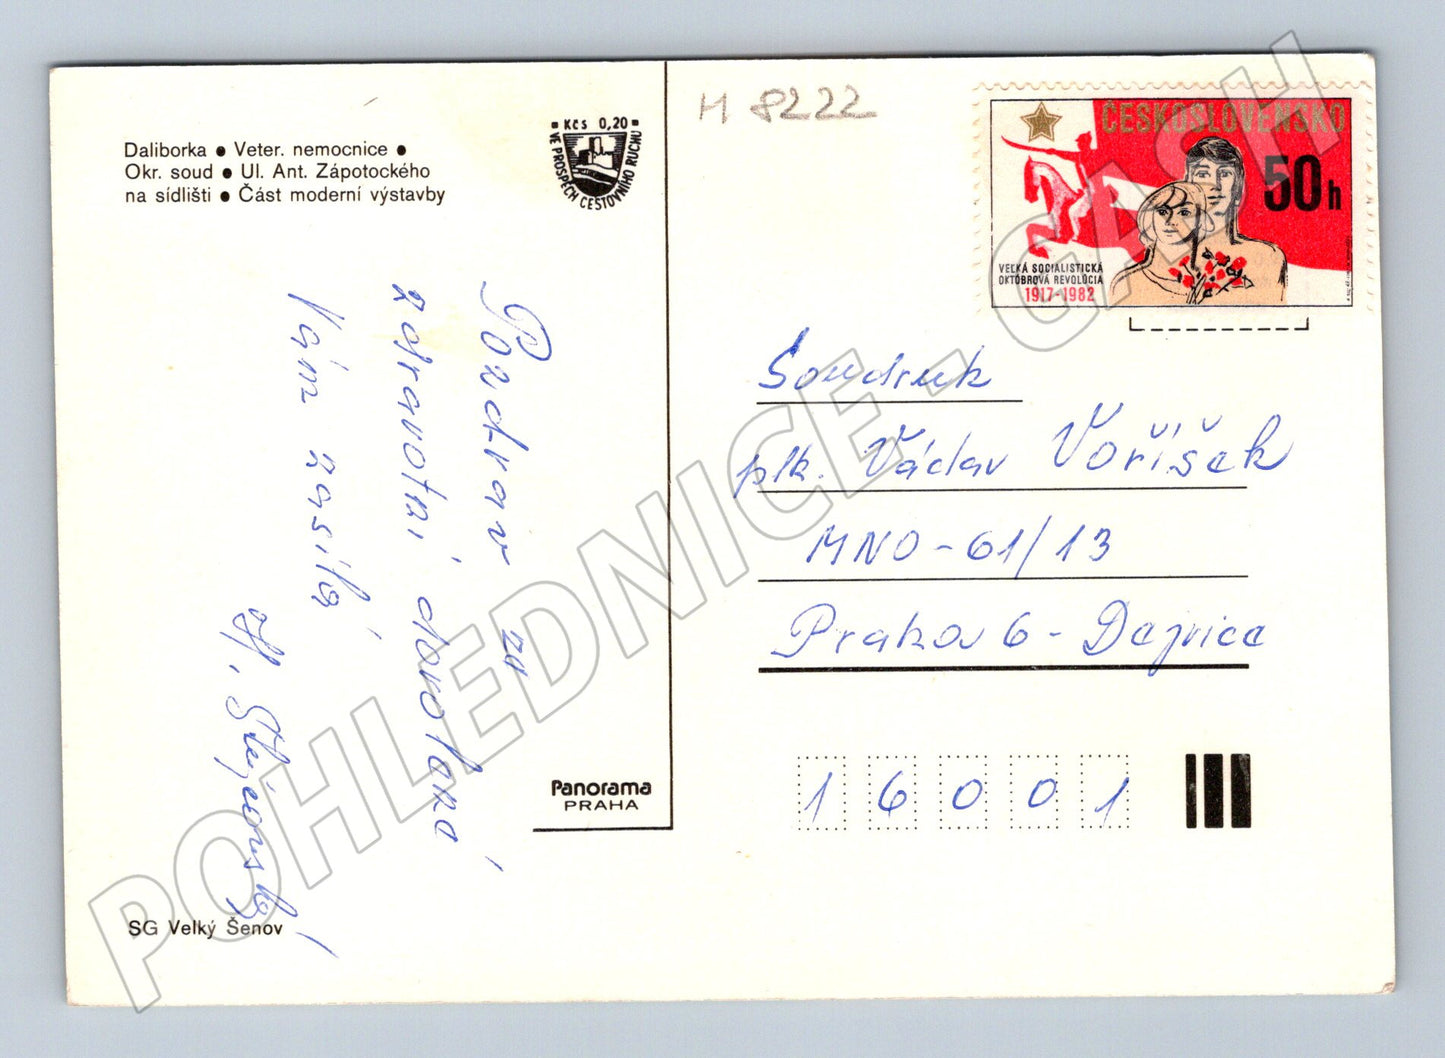 Daliborka ● Veter. nemocnice ●
Okr. soud ● Ul. Ant. Zápotockého
na sídlišti ● Část moderní výstavby
Kčs 0,20
VE PROSPĚCH CESTOVNÍHO RUCHU
M 8222
ČESKOSLOVENSKO
50 h
VEĽKÁ SOCIALISTICKÁ
OKTÓBROVÁ REVOLÚCIA
1917-1982
Pozdrav ze
zdravotní
Vám zasílá
Soudruh
plk. Václav Voříšek
MNO - 61/13
Praha 6 - Dejvice
16001
Panorama
PRAHA
SG Velký Šenov
POHLEDNICE - CASH